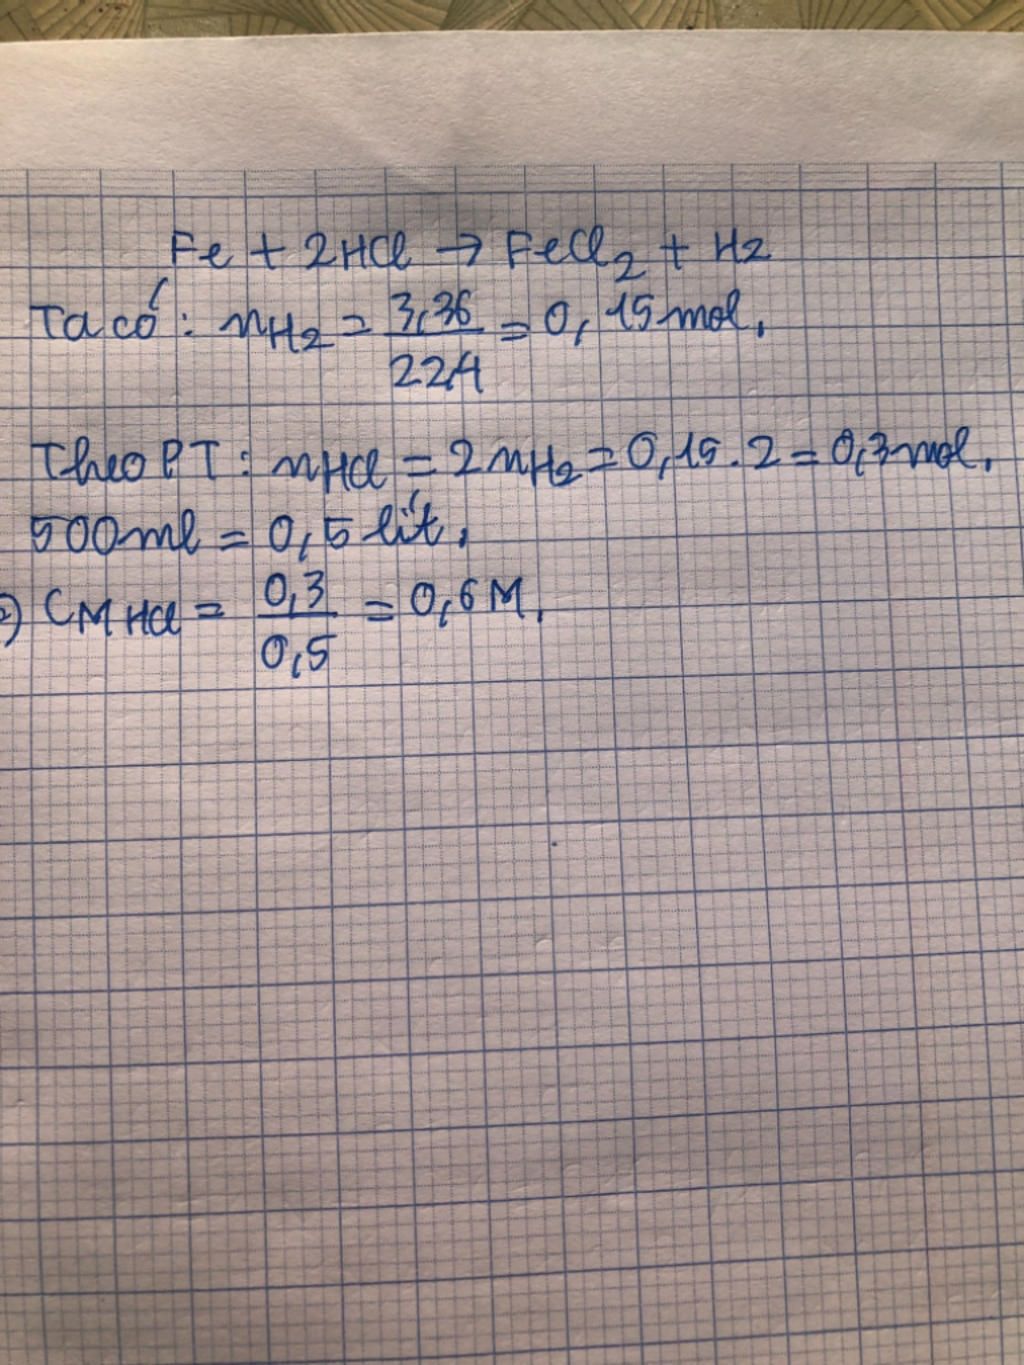 Fe + 2HCl → FeCl₂ + H₂
Ta có : nH₂ = 3,36/22,4 = 0,15 mol.
Theo PT : nHCl = 2nH₂ = 0,15.2 = 0,3 mol.
500ml = 0,5 lít.
=) CM HCl = 0,3/0,5 = 0,6 M.